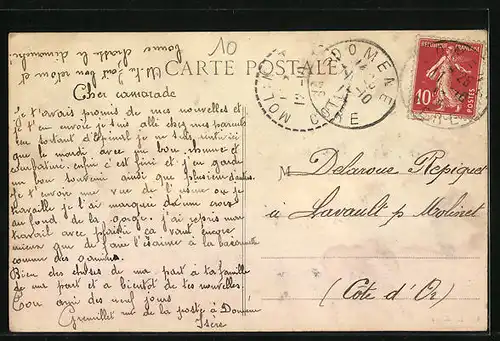 bonne chasse le dimanche
et la fait bon retour et
10
CARTE POSTALE
DOMENE
REPUBLIQUE FRANÇAISE
10
POSTES
Cher camarade
Je t'avais promis de mes nouvelles et
je t'en envoie je suis allé chez mes parents
en sortant d'Epinal je me suis
que le mardi avec un bon rhume et
enfin c'est fini et j'en garde
un bon souvenir ainsi que plusieurs
Je t'envoie une vue de l'usine ou je
travaille je l'ai marquée d'une croix
au fond de la gorge. j'ai repris mon
travail avec plaisir ça vaut encore
mieux que de faire l'escrime à la baionnette
comme des gamins.
Bien des choses de ma part à ta famille
de ma part et a bientôt de tes nouvelles.
Ton ami des neuf jours
rue de la poste à Domène
Isère
M Delaroue
à Lavault p Molinot
(Cote d'Or)